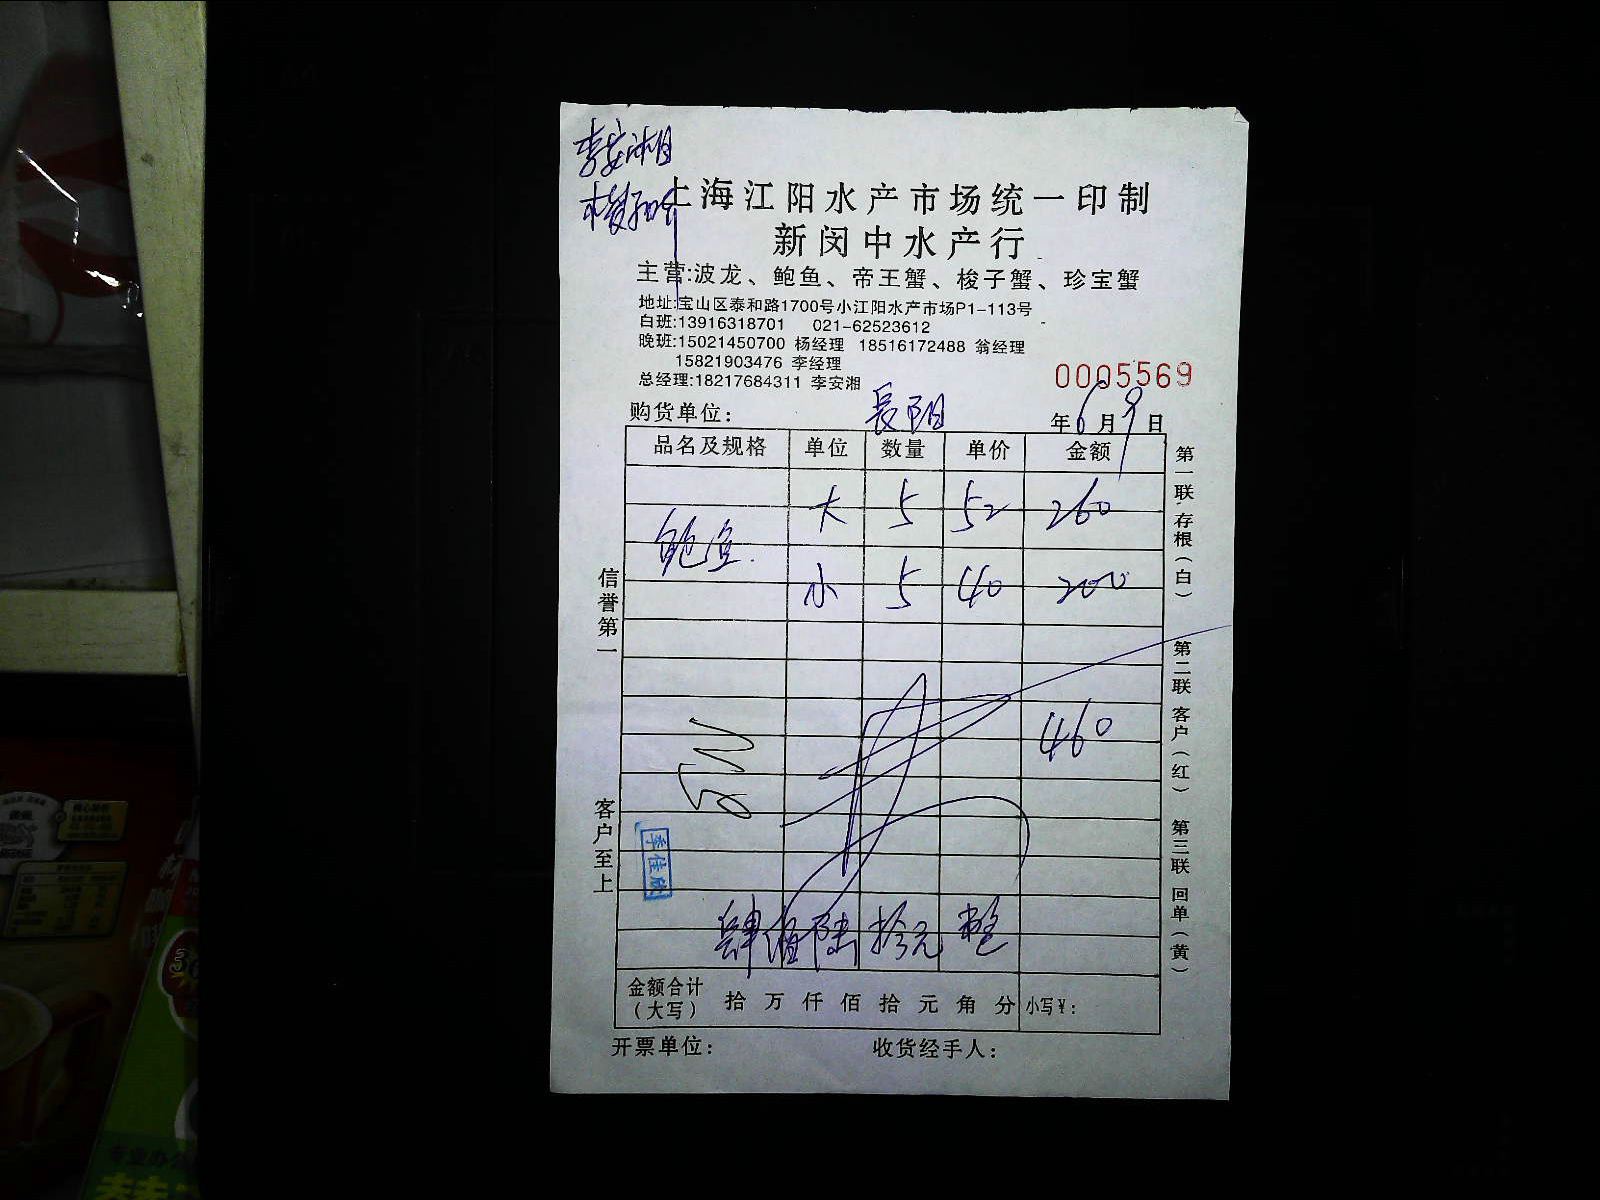 李安湘
上海江阳水产市场统一印制
新闵中水产行
主营:波龙、鲍鱼、帝王蟹、梭子蟹、珍宝蟹
地址:宝山区泰和路1700号小江阳水产市场P1-113号
白班:13916318701 021-62523612
晚班:15021450700 杨经理 18516172488 翁经理
15821903476 李经理
总经理:18217684311 李安湘
0005569
购货单位: 長阳 年6月9日
品名及规格 单位 数量 单价 金额
大 5 52 260
鲍鱼
小 5 40 200
460
李佳欣
肆佰陆拾元整
金额合计(大写) 拾万仟佰拾元角分 小写¥:
开票单位: 收货经手人:
信誉第一
客户至上
第一联 存根(白)
第二联 客户(红)
第三联 回单(黄)